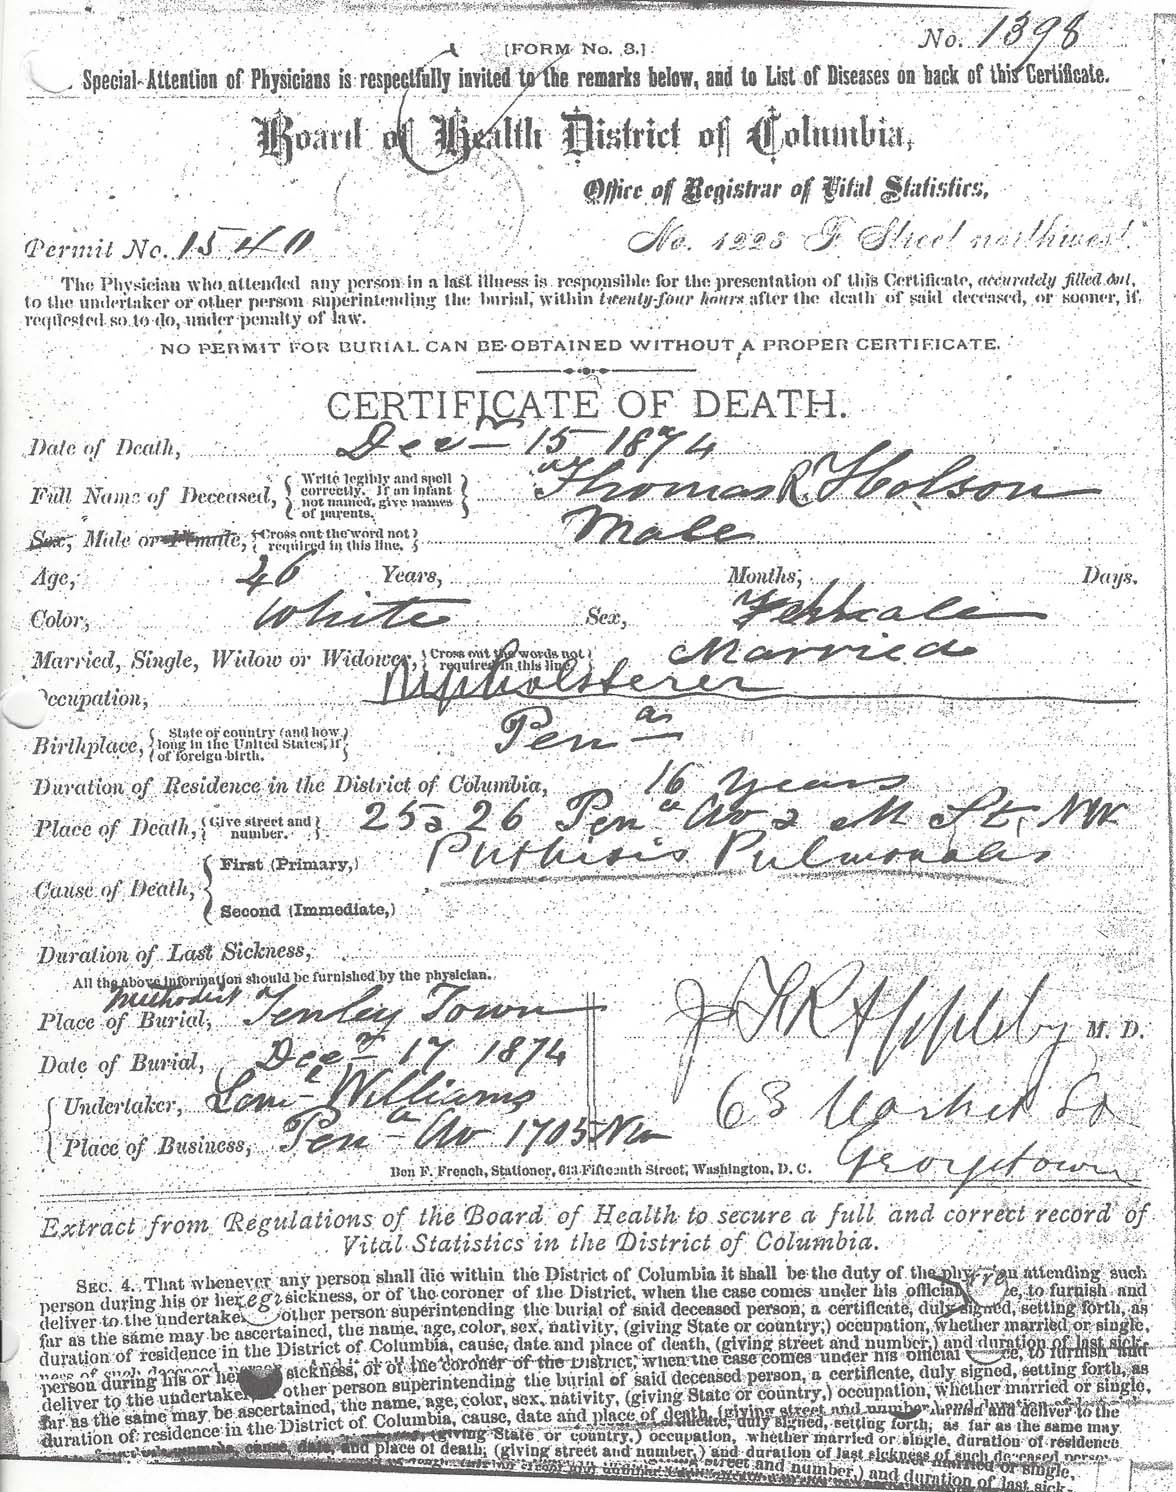 No. 1398
[FORM No. 3.]
Special Attention of Physicians is respectfully invited to the remarks below, and to List of Diseases on back of this Certificate.
Board of Health District of Columbia,
Office of Registrar of Vital Statistics,
Permit No. 1540 No. 1223 F Street northwest.
The Physician who attended any person in a last illness is responsible for the presentation of this Certificate, accurately filled out,
to the undertaker or other person superintending the burial, within twenty-four hours after the death of said deceased, or sooner, if
requested so to do, under penalty of law.
NO PERMIT FOR BURIAL CAN BE OBTAINED WITHOUT A PROPER CERTIFICATE.
CERTIFICATE OF DEATH.
Date of Death, Decr 15 1874
Full Name of Deceased, { Write legibly and spell correctly. If an infant not named, give names of parents. } Thomas R. Holson
Sex, Male or Female, { Cross out the word not required in this line. } Male
Age, 46 Years, Months, Days.
Color, White Sex, Female
Married, Single, Widow or Widower, { Cross out the words not required in this line } Married
Occupation, Upholsterer
Birthplace, { State or country (and how long in the United States, if of foreign birth. } Pena
Duration of Residence in the District of Columbia, 16 years
Place of Death, { Give street and number. } 25 & 26 Pena Av & M St. NW
Cause of Death, { First (Primary,) Puthisis Pulmonalis
Second (Immediate,)
Duration of Last Sickness,
All the above information should be furnished by the physician.
Place of Burial, Methodist Tenley Town
J R Appleby M. D.
Date of Burial, Dec 17 1874
Undertaker, Williams
63 Market
Place of Business, Pena Av 1705 NW
Georgetown
Ben F. French, Stationer, 613 Fifteenth Street, Washington, D. C.
Extract from Regulations of the Board of Health to secure a full and correct record of
Vital Statistics in the District of Columbia.
SEC. 4. That whenever any person shall die within the District of Columbia it shall be the duty of the attending such
person during his or her sickness, or of the coroner of the District, when the case comes under his official to furnish and
deliver to the undertaker other person superintending the burial of said deceased person, a certificate, duly signed, setting forth, as
far as the same may be ascertained, the name, age, color, sex, nativity, (giving State or country,) occupation, whether married or single,
duration of residence in the District of Columbia, cause, date and place of death, (giving street and number,) and duration of last sick-
person during his or her sickness, or of the coroner of the District, when the case comes under his official to furnish and
deliver to the undertaker other person superintending the burial of said deceased person, a certificate, duly signed, setting forth, as
far as the same may be ascertained, the name, age, color, sex, nativity, (giving State or country,) occupation, whether married or single,
duration of residence in the District of Columbia, cause, date and place of death, duly signed, setting forth, as far as the same may
(giving State or country,) occupation, whether married or single, duration of residence
and place of death, (giving street and number,) and duration of last sickness of such deceased
street and number,) and duration of last sick-